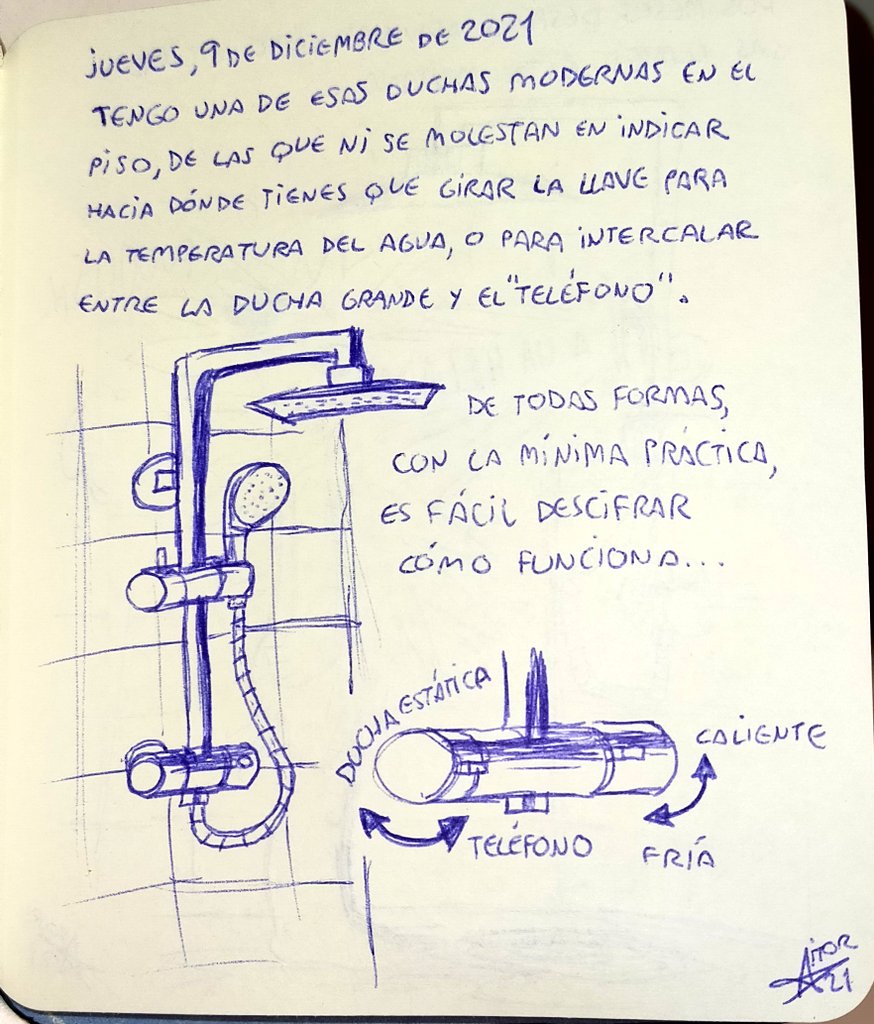 JUEVES, 9 DE DICIEMBRE DE 2021
TENGO UNA DE ESAS DUCHAS MODERNAS EN EL
PISO, DE LAS QUE NI SE MOLESTAN EN INDICAR
HACIA DÓNDE TIENES QUE GIRAR LA LLAVE PARA
LA TEMPERATURA DEL AGUA, O PARA INTERCALAR
ENTRE LA DUCHA GRANDE Y EL "TELÉFONO".
DE TODAS FORMAS,
CON LA MÍNIMA PRÁCTICA,
ES FÁCIL DESCIFRAR
CÓMO FUNCIONA...
DUCHA ESTÁTICA
CALIENTE
TELÉFONO
FRÍA
AITOR
21